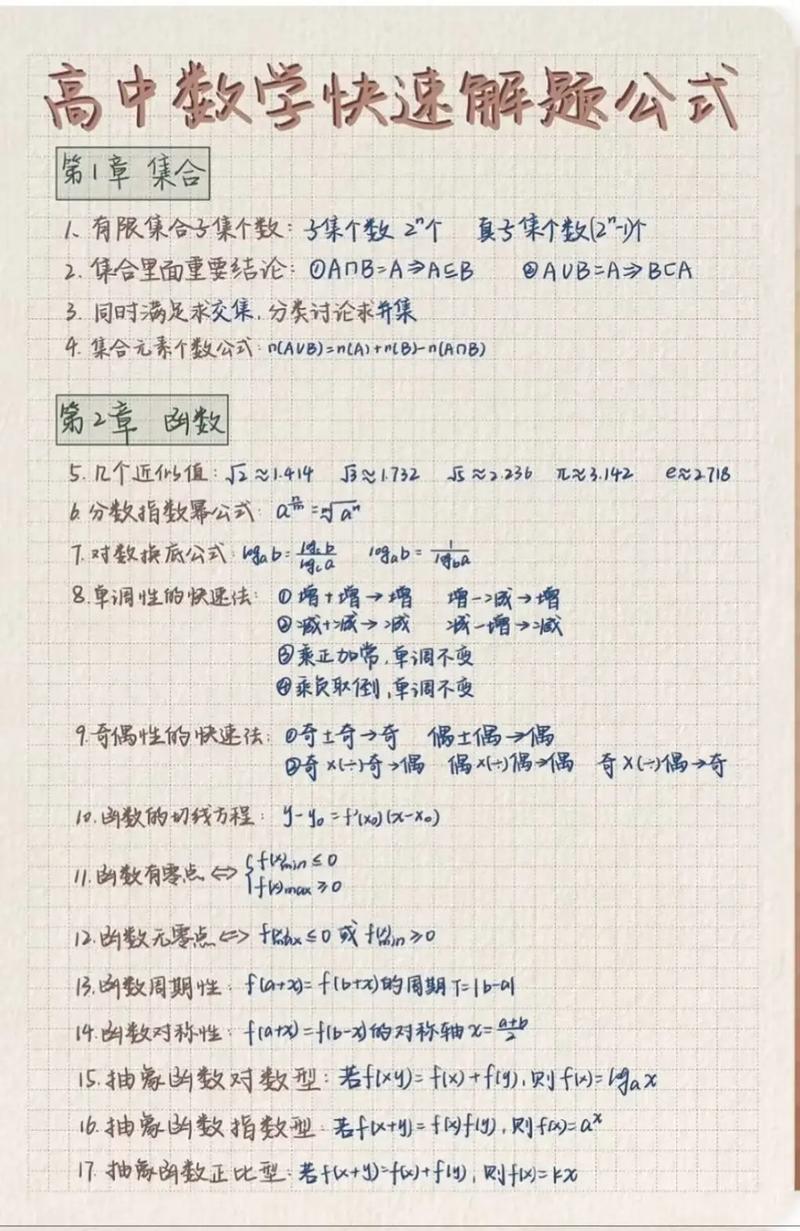 高中数学快速解题公式
第1章 集合
1、有限集合子集个数：子集个数 2ⁿ个 真子集个数(2ⁿ-1)个
2. 集合里面重要结论：①A∩B=A⇒A⊆B ②A∪B=A⇒B⊂A
3. 同时满足求交集，分类讨论求并集
4. 集合元素个数公式：n(A∪B)=n(A)+n(B)-n(A∩B)
第2章 函数
5. 几个近似值：√2≈1.414 √3≈1.732 √5≈2.236 π≈3.142 e≈2.718
6. 分数指数幂公式：a^(n/m)=ᵐ√aⁿ
7. 对数换底公式：log_a b=log_c b/log_c a log_a b=1/log_b a
8. 单调性的快速法：①增+增→增 增-减→增
②减+减→减 减-增→减
③乘正加常，单调不变
④乘负取倒，单调不变
9. 奇偶性的快速法：①奇±奇→奇 偶±偶→偶
②奇×(÷)奇→偶 偶×(÷)偶→偶 奇×(÷)偶→奇
10. 函数的切线方程：y-y₀=f'(x₀)(x-x₀)
11. 函数有零点⇔{f(x)min≤0
f(x)max≥0
12. 函数无零点⇔f(x)max≤0 或 f(x)min≥0
13. 函数周期性：f(a+x)=f(b+x)的周期T=|b-a|
14. 函数对称性：f(a+x)=f(b-x)的对称轴x=(a+b)/2
15. 抽象函数对数型：若f(xy)=f(x)+f(y)，则f(x)=log_a x
16. 抽象函数指数型：若f(x+y)=f(x)f(y)，则f(x)=aˣ
17. 抽象函数正比型：若f(x+y)=f(x)+f(y)，则f(x)=kx